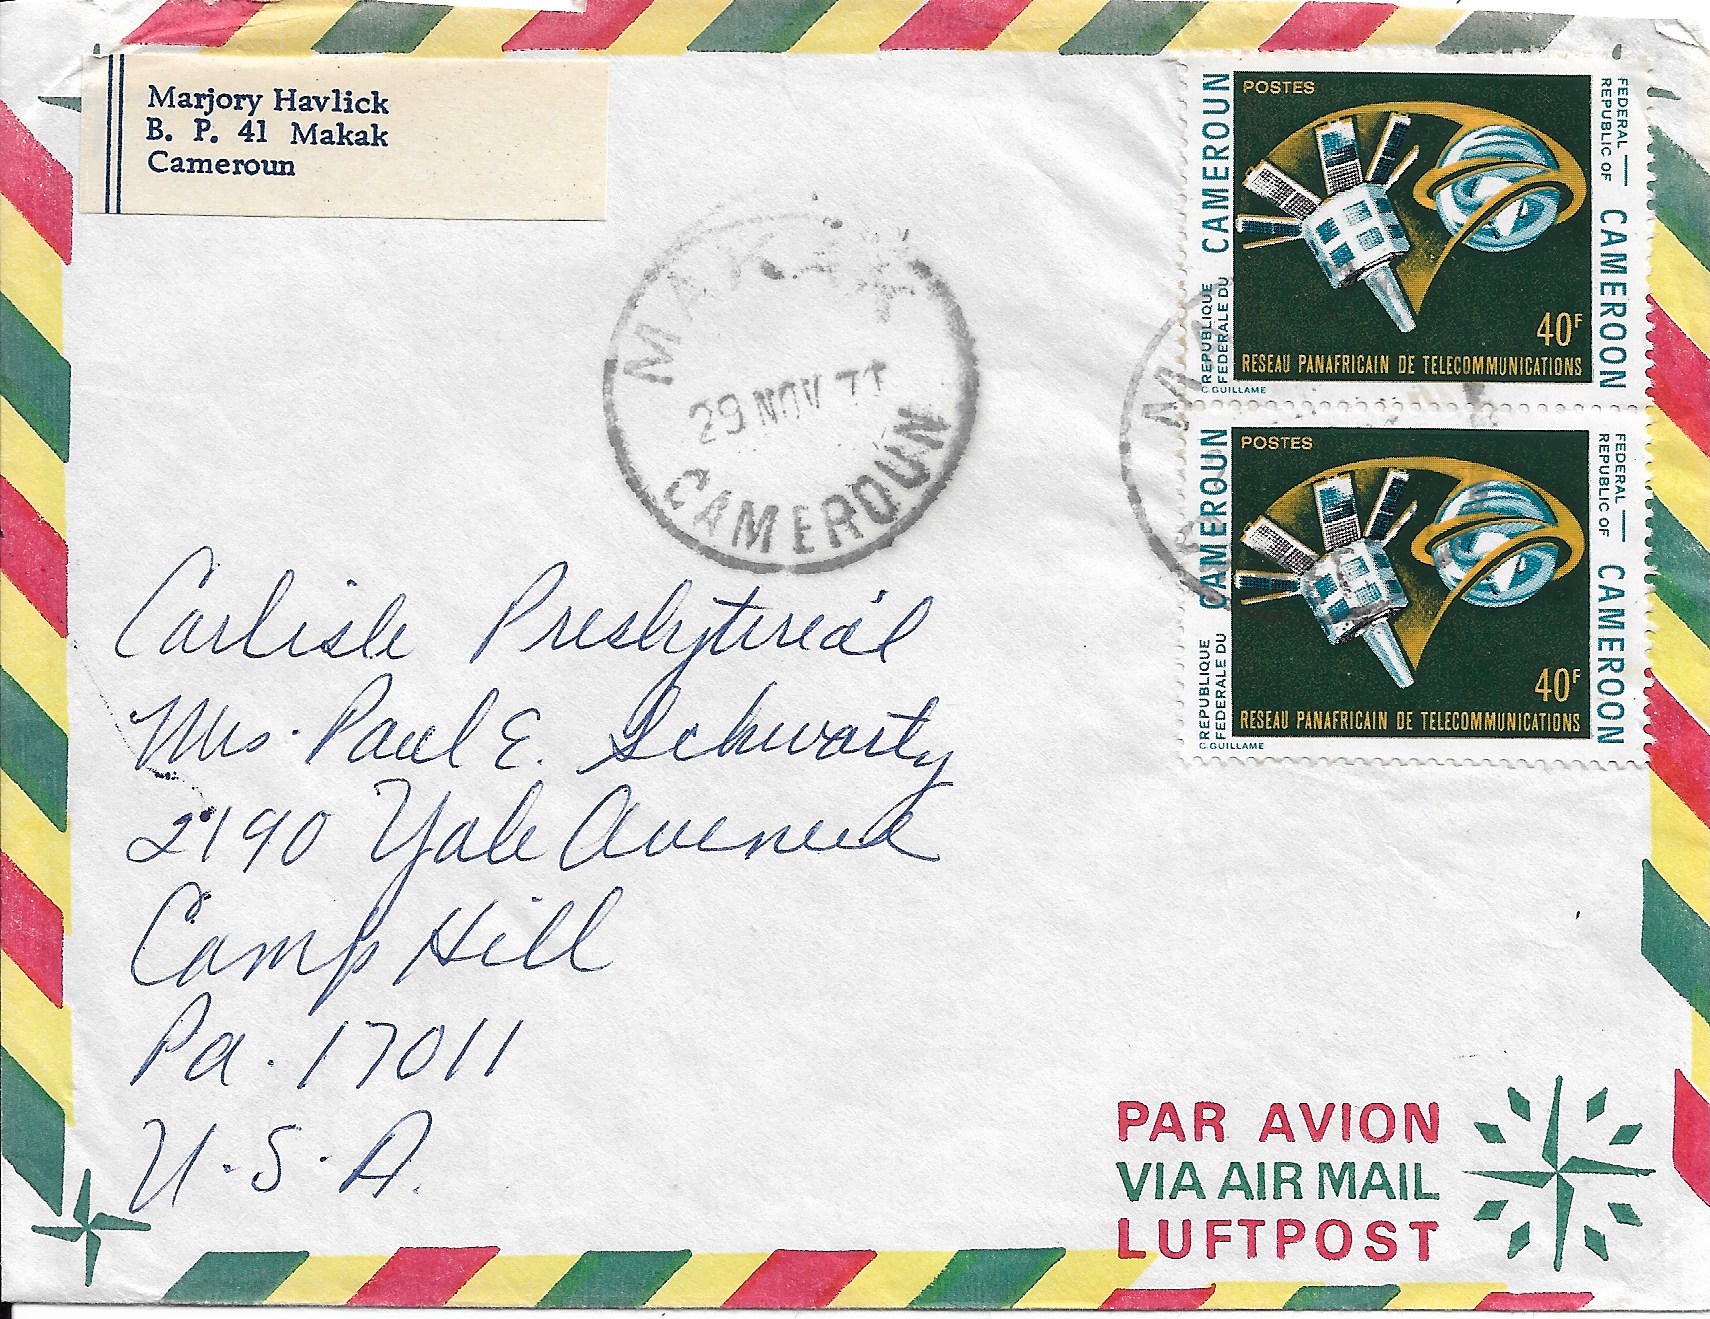 Marjory Havlick
B. P. 41 Makak
Cameroun
MAKAK
29 NOV 71
CAMEROUN
POSTES
REPUBLIQUE FEDERALE DU CAMEROUN
FEDERAL REPUBLIC OF CAMEROON
40F
RESEAU PANAFRICAIN DE TELECOMMUNICATIONS
C. GUILLAME
POSTES
REPUBLIQUE FEDERALE DU CAMEROUN
FEDERAL REPUBLIC OF CAMEROON
40F
RESEAU PANAFRICAIN DE TELECOMMUNICATIONS
C. GUILLAME
Carlisle Presbyterial
Mrs. Paul E. Schwartz
2190 Yale Avenue
Camp Hill
Pa. 17011
U.S.A.
PAR AVION
VIA AIR MAIL
LUFTPOST